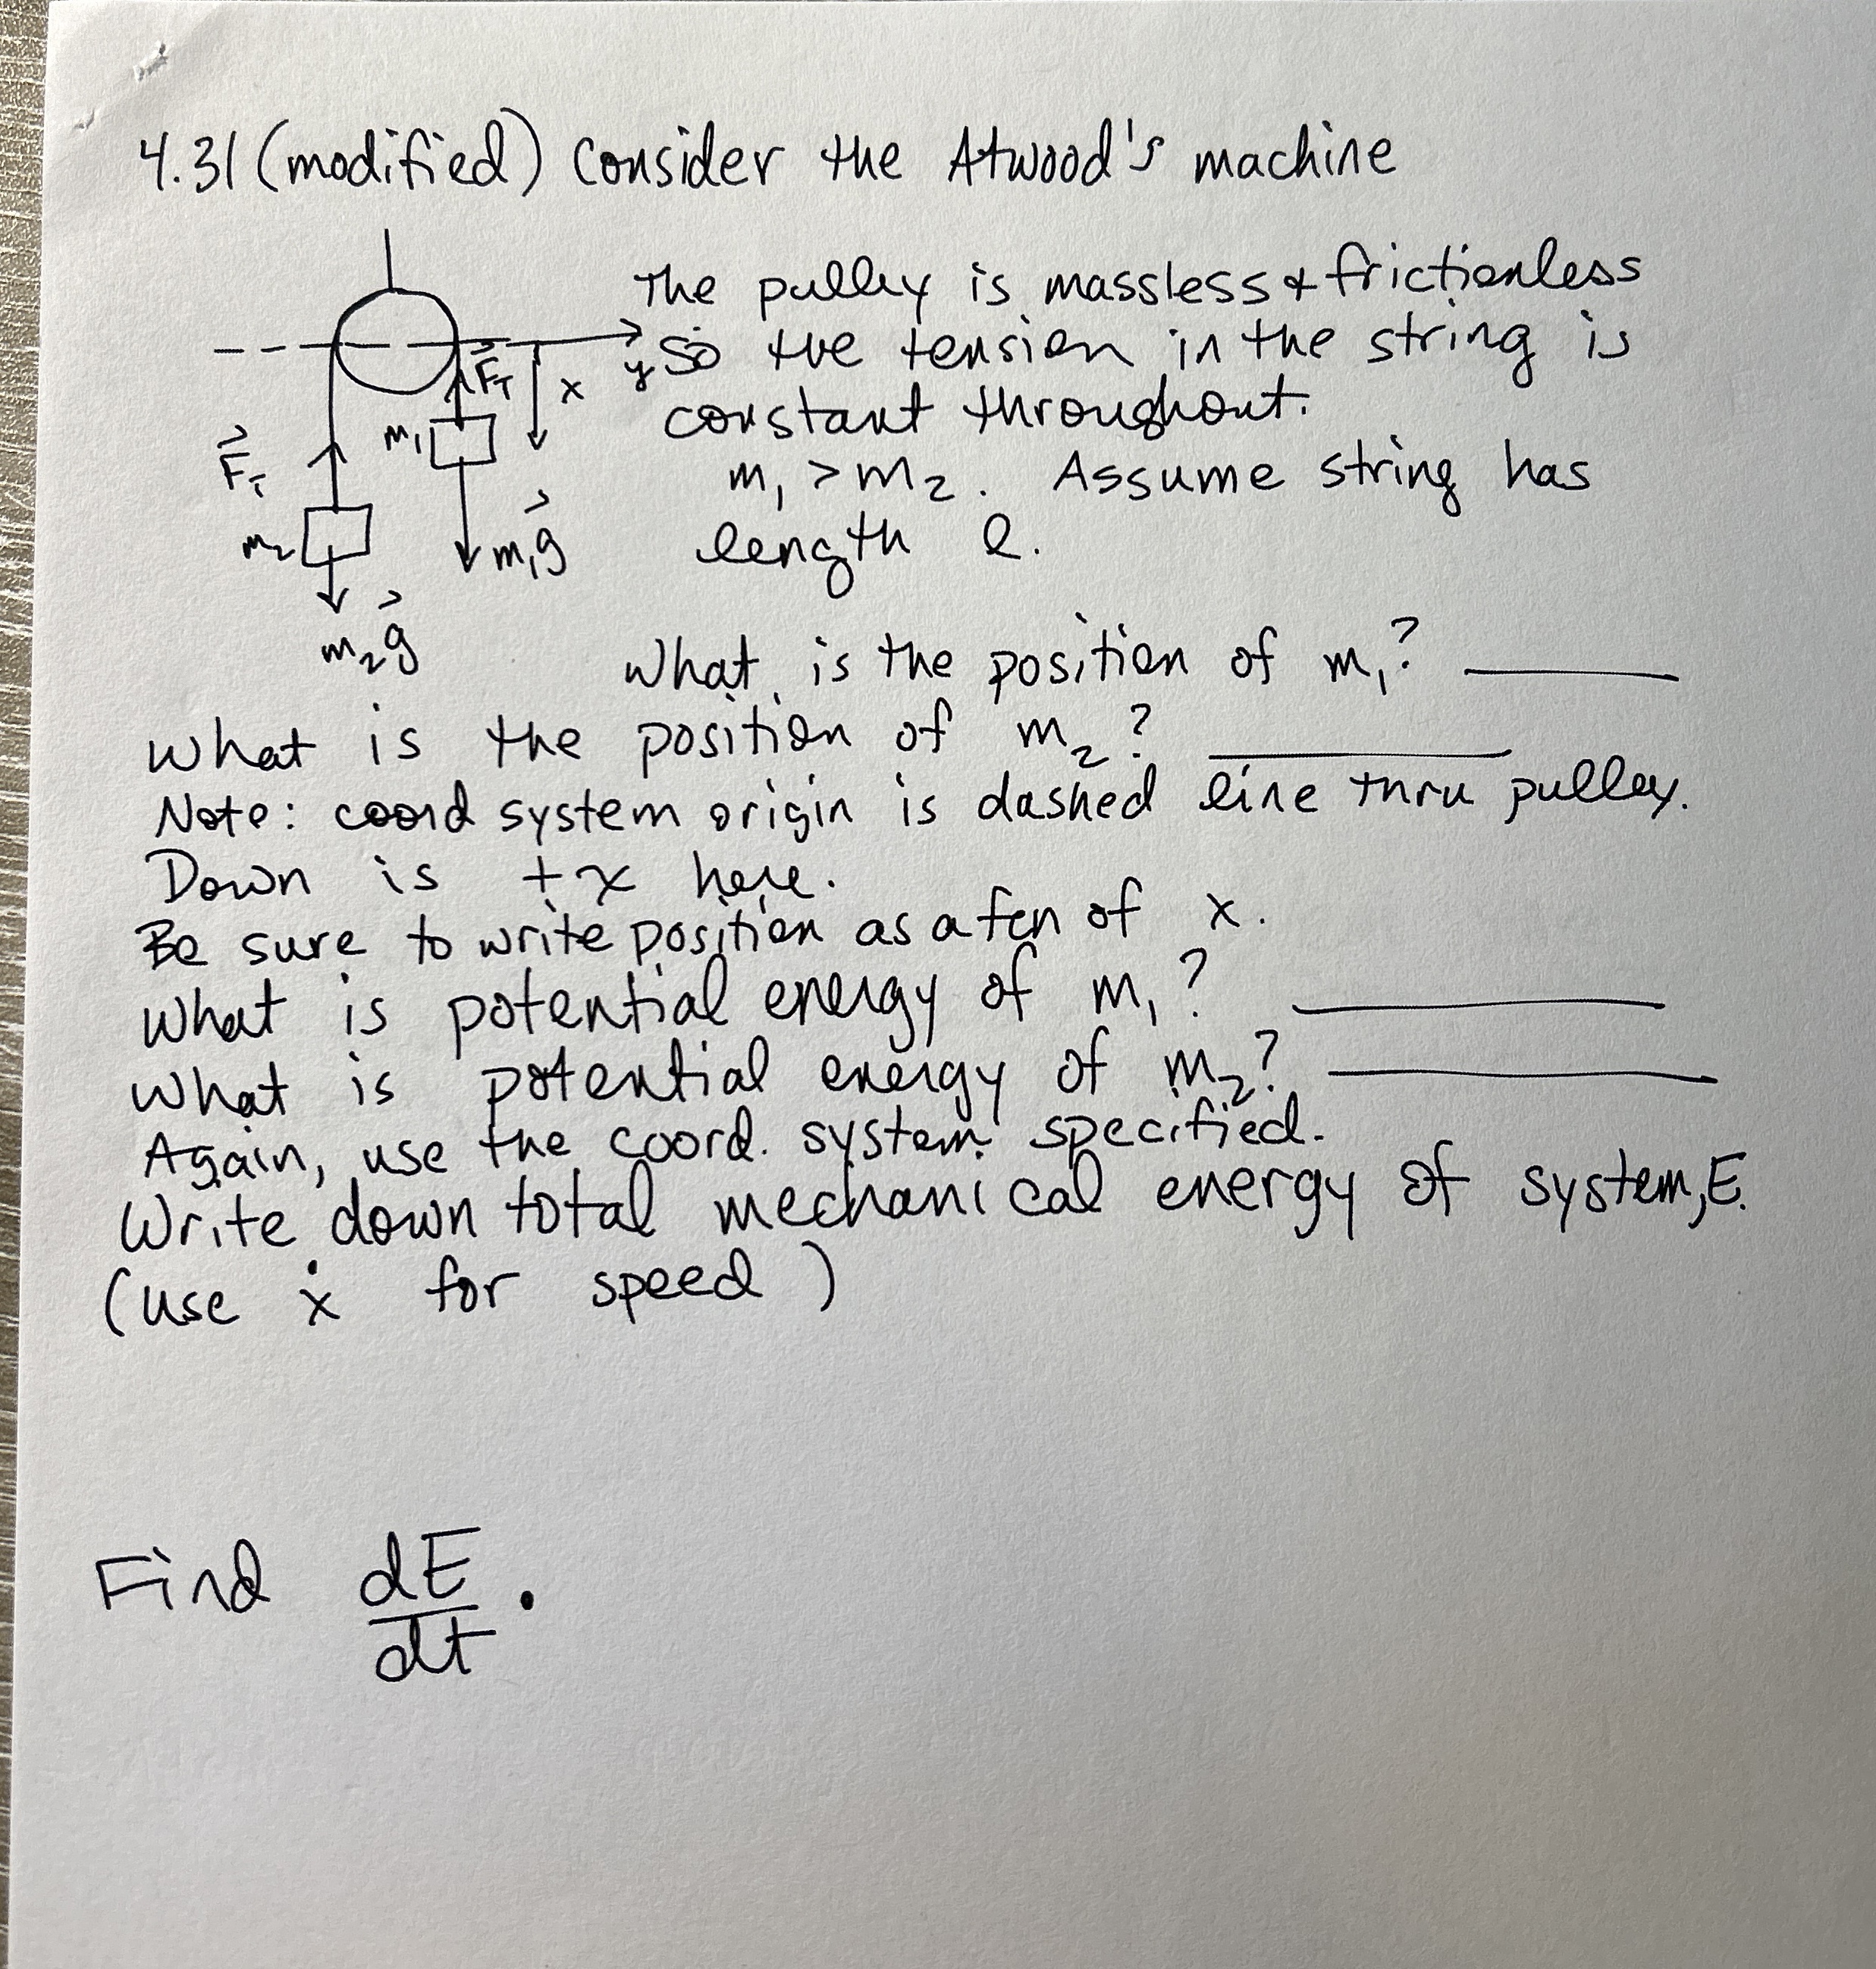 4.31 (modified) Consider the Atwood's machine
The pulley is massless & frictionless
so the tension in the string is
constant throughout.
m₁ > m₂. Assume string has
length l.
y
F⃗T
x
m₁
F⃗T
m₂
m₁g⃗
m₂g⃗
What is the position of m₁?
What is the position of m₂?
Note: coord system origin is dashed line thru pulley.
Down is +x here.
Be sure to write position as a fcn of x.
What is potential energy of m₁?
What is potential energy of m₂?
Again, use the coord. system specified.
Write down total mechanical energy of system, E.
(use ẋ for speed)
Find dE/dt.